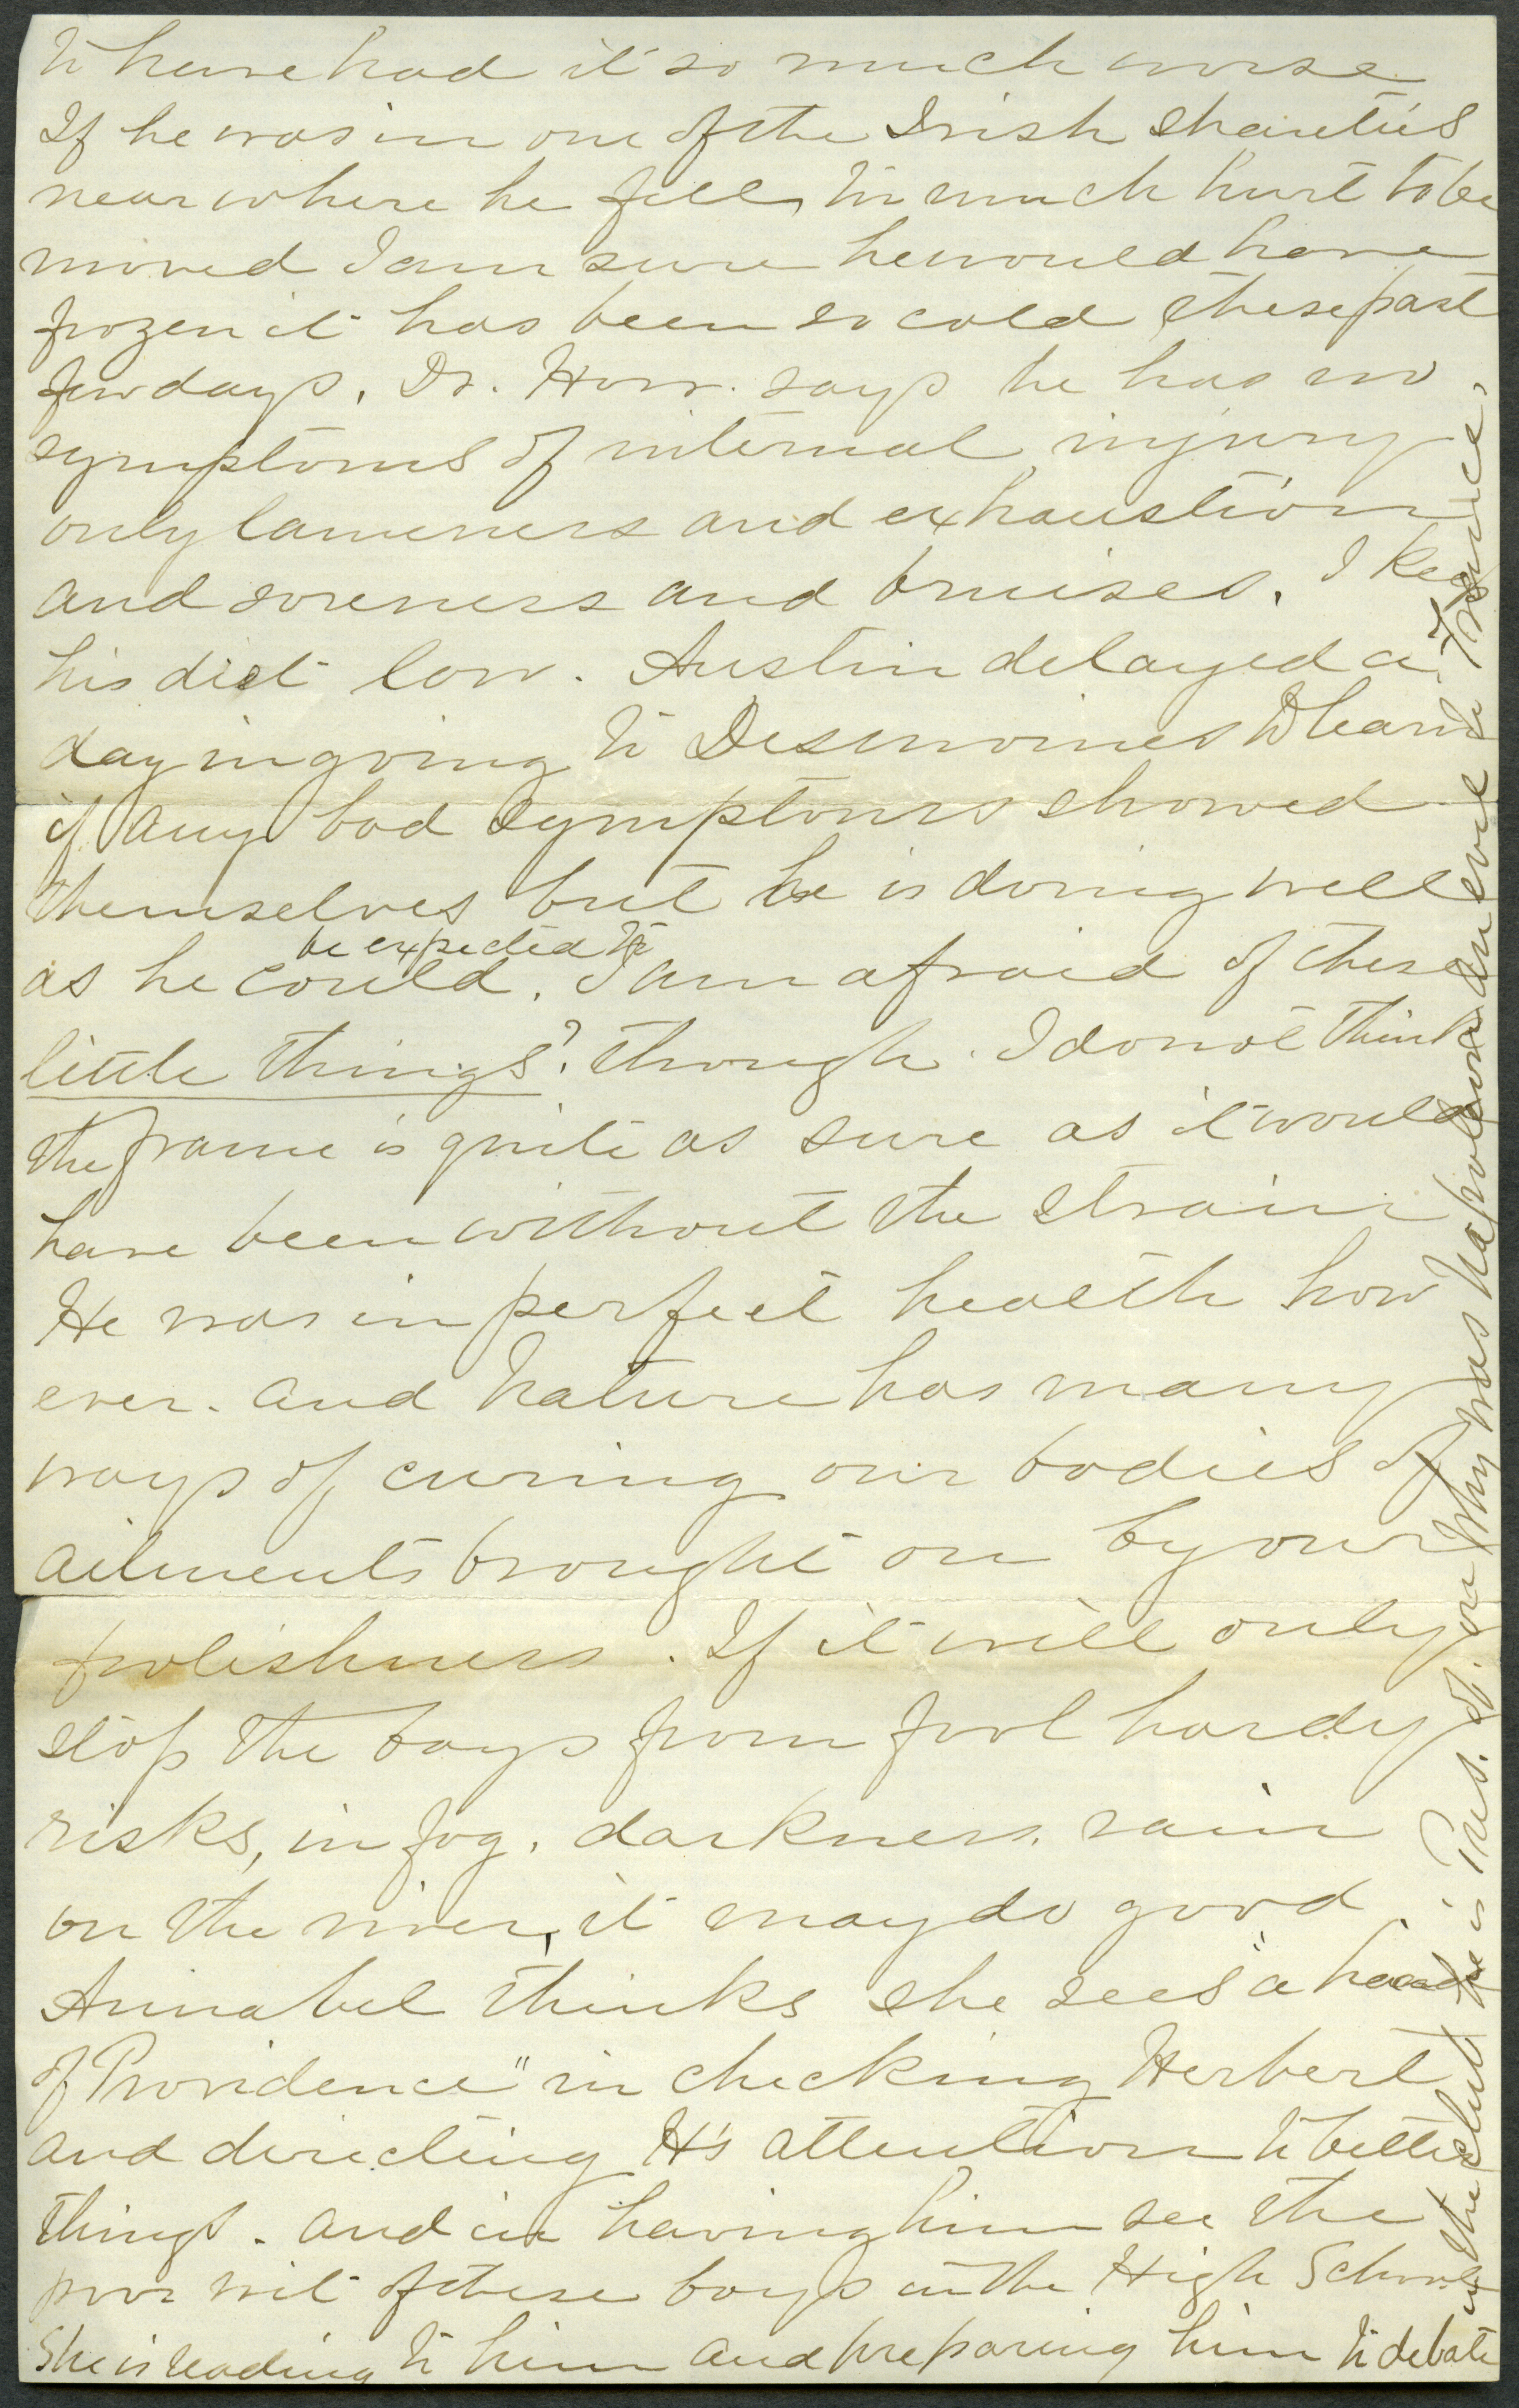 to have had it so much worse
If he was in one of the Irish shanties
near where he fell, too much hurt to be
moved I am sure he would have
frozen it has been so cold these past
few days, Dr. Horr. says he has no
symptoms of internal injury
only lameness and exhaustion
and soreness and bruises. I keep
his diet low. Austin delayed a
day in going to Desmoines to learn
if any bad symptoms showed
themselves but he is doing well
be expected to
as he could. I am afraid of these
little things? though. I do not think
the frame is quite as sure as it would
have been without the strain
He was in perfect health how
ever. and Nature has many
ways of curing our bodies of
ailments brought on by our
foolishness. If it will only
stop the boys from fool hardy
risks, in fog, darkness, rain
on the river, it may do good.
Annabel thinks she sees "a hand
of Providence" in checking Herbert
and directing H's attention to better
things. and in having him see the
poor wit of these boys in the High School
She is reading to him and preparing him to debate
in the club, he is Pres. of. on Why was Napoleon an evil to France.